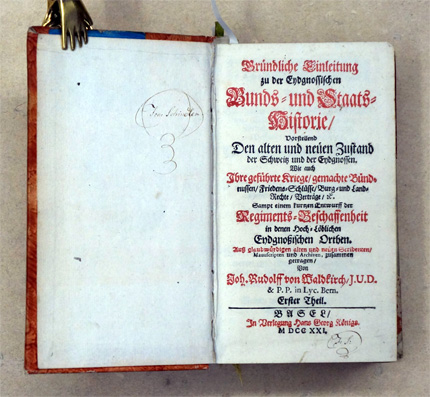 Gründliche Einleitung
zu der Eydgnossischen
Bunds- und Staats-
Historie/
Vorstellend
Den alten und neüen Zustand
der Schweitz und der Eydgnossen,
Wie auch
Ihre geführte Kriege/ gemachte Bünd-
nussen/ Friedens-Schlüsse/ Burg- und Land-
Rechte/ Verträge/ &c.
Sampt einem kurtzen Entwurff der
Regiments-Beschaffenheit
in denen Hoch-Löblichen
Eydgnoßischen Orthen.
Auß glaubwürdigen alten und neüen Scribenten/
Manuscripten und Archiven, zusammen
getragen/
Von
Joh. Rudolff von Waldkirch/ J.U.D.
& P. P. in Lyc. Bern.
Erster Theil.
BASEL/
In Verlegung Hans Georg Königs.
M DCC XXI.